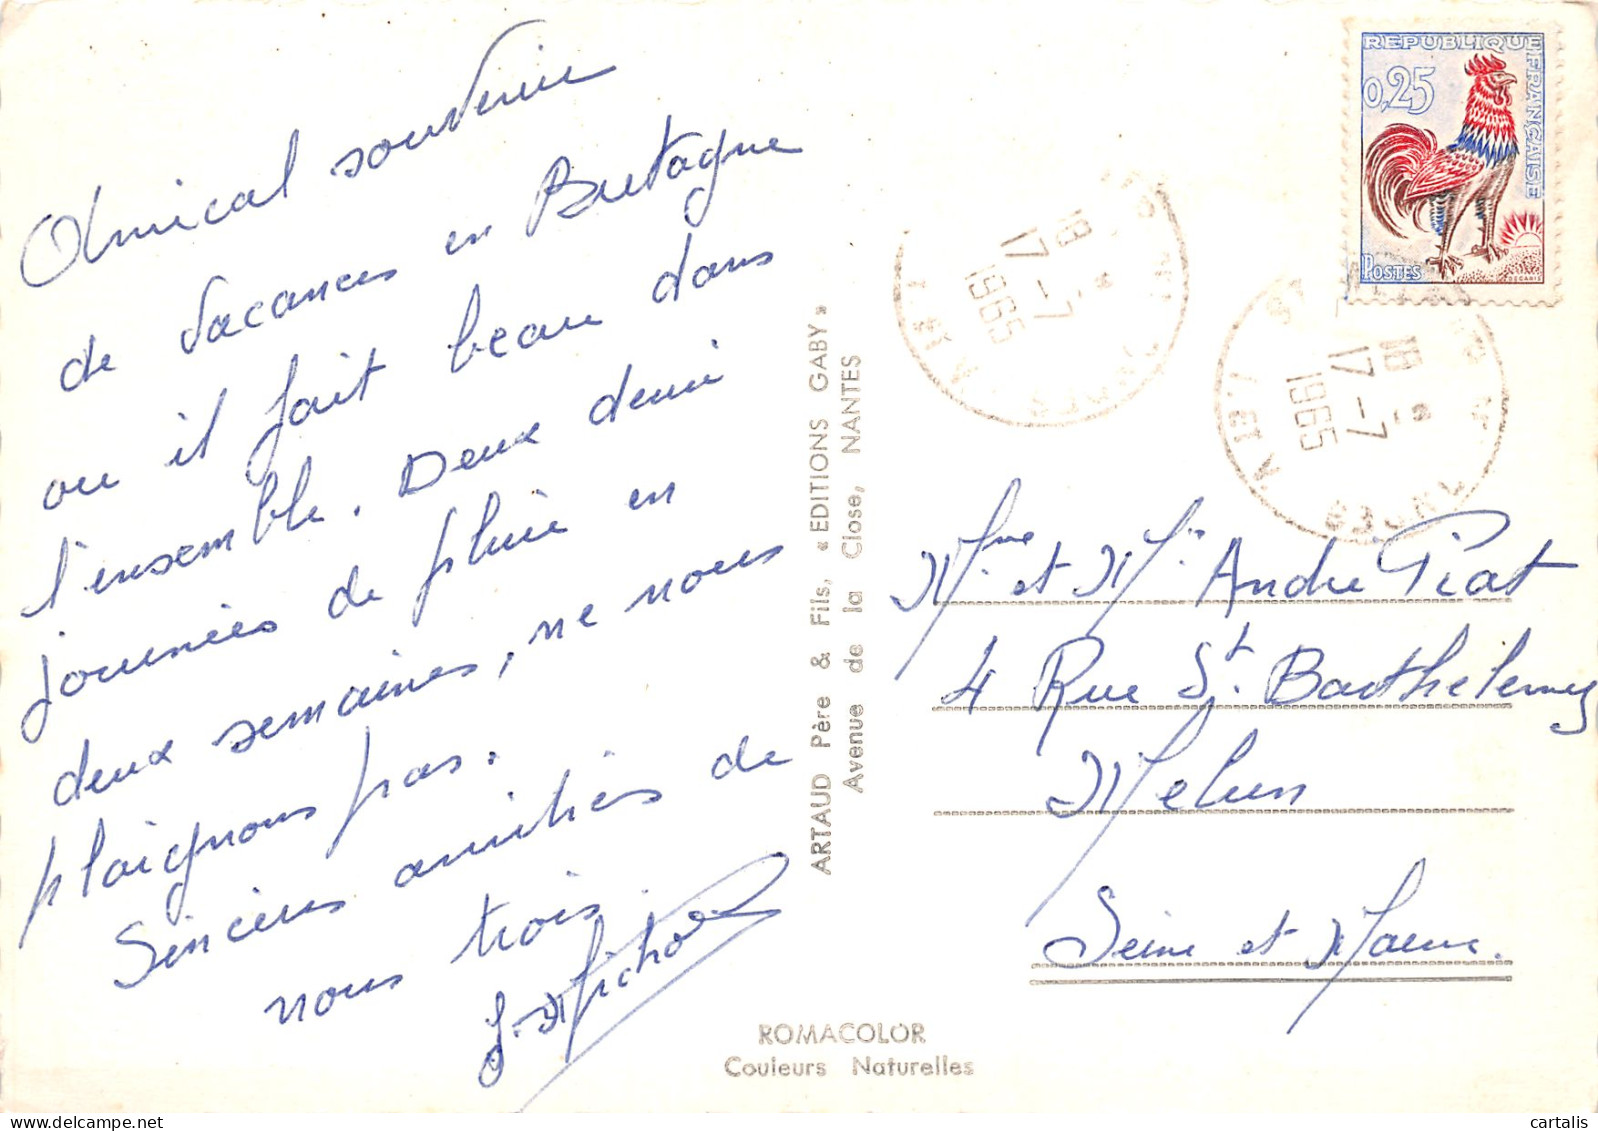 Amical souvenir
de vacances en Bretagne
ou il fait beau dans
l'ensemble. Deux demi
journées de pluie en
deux semaines, ne nous
plaignons pas.
Sincères amitiés de
nous trois.
ARTAUD Père & Fils, « EDITIONS GABY »
Avenue de la Close, NANTES
ROMACOLOR
Couleurs Naturelles
REPUBLIQUE FRANÇAISE
0,25
POSTES
DECARIS
18 -
17 - 7
1965
18 -
17 - 7
1965
Mme et Mr André Piat
4 Rue St. Barthelemy
Melun
Seine et Marne.
cartalis.com